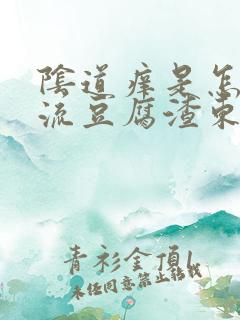 陰道痒是怎
流豆腐渣東
青衫金頂1
未经同意禁止转载